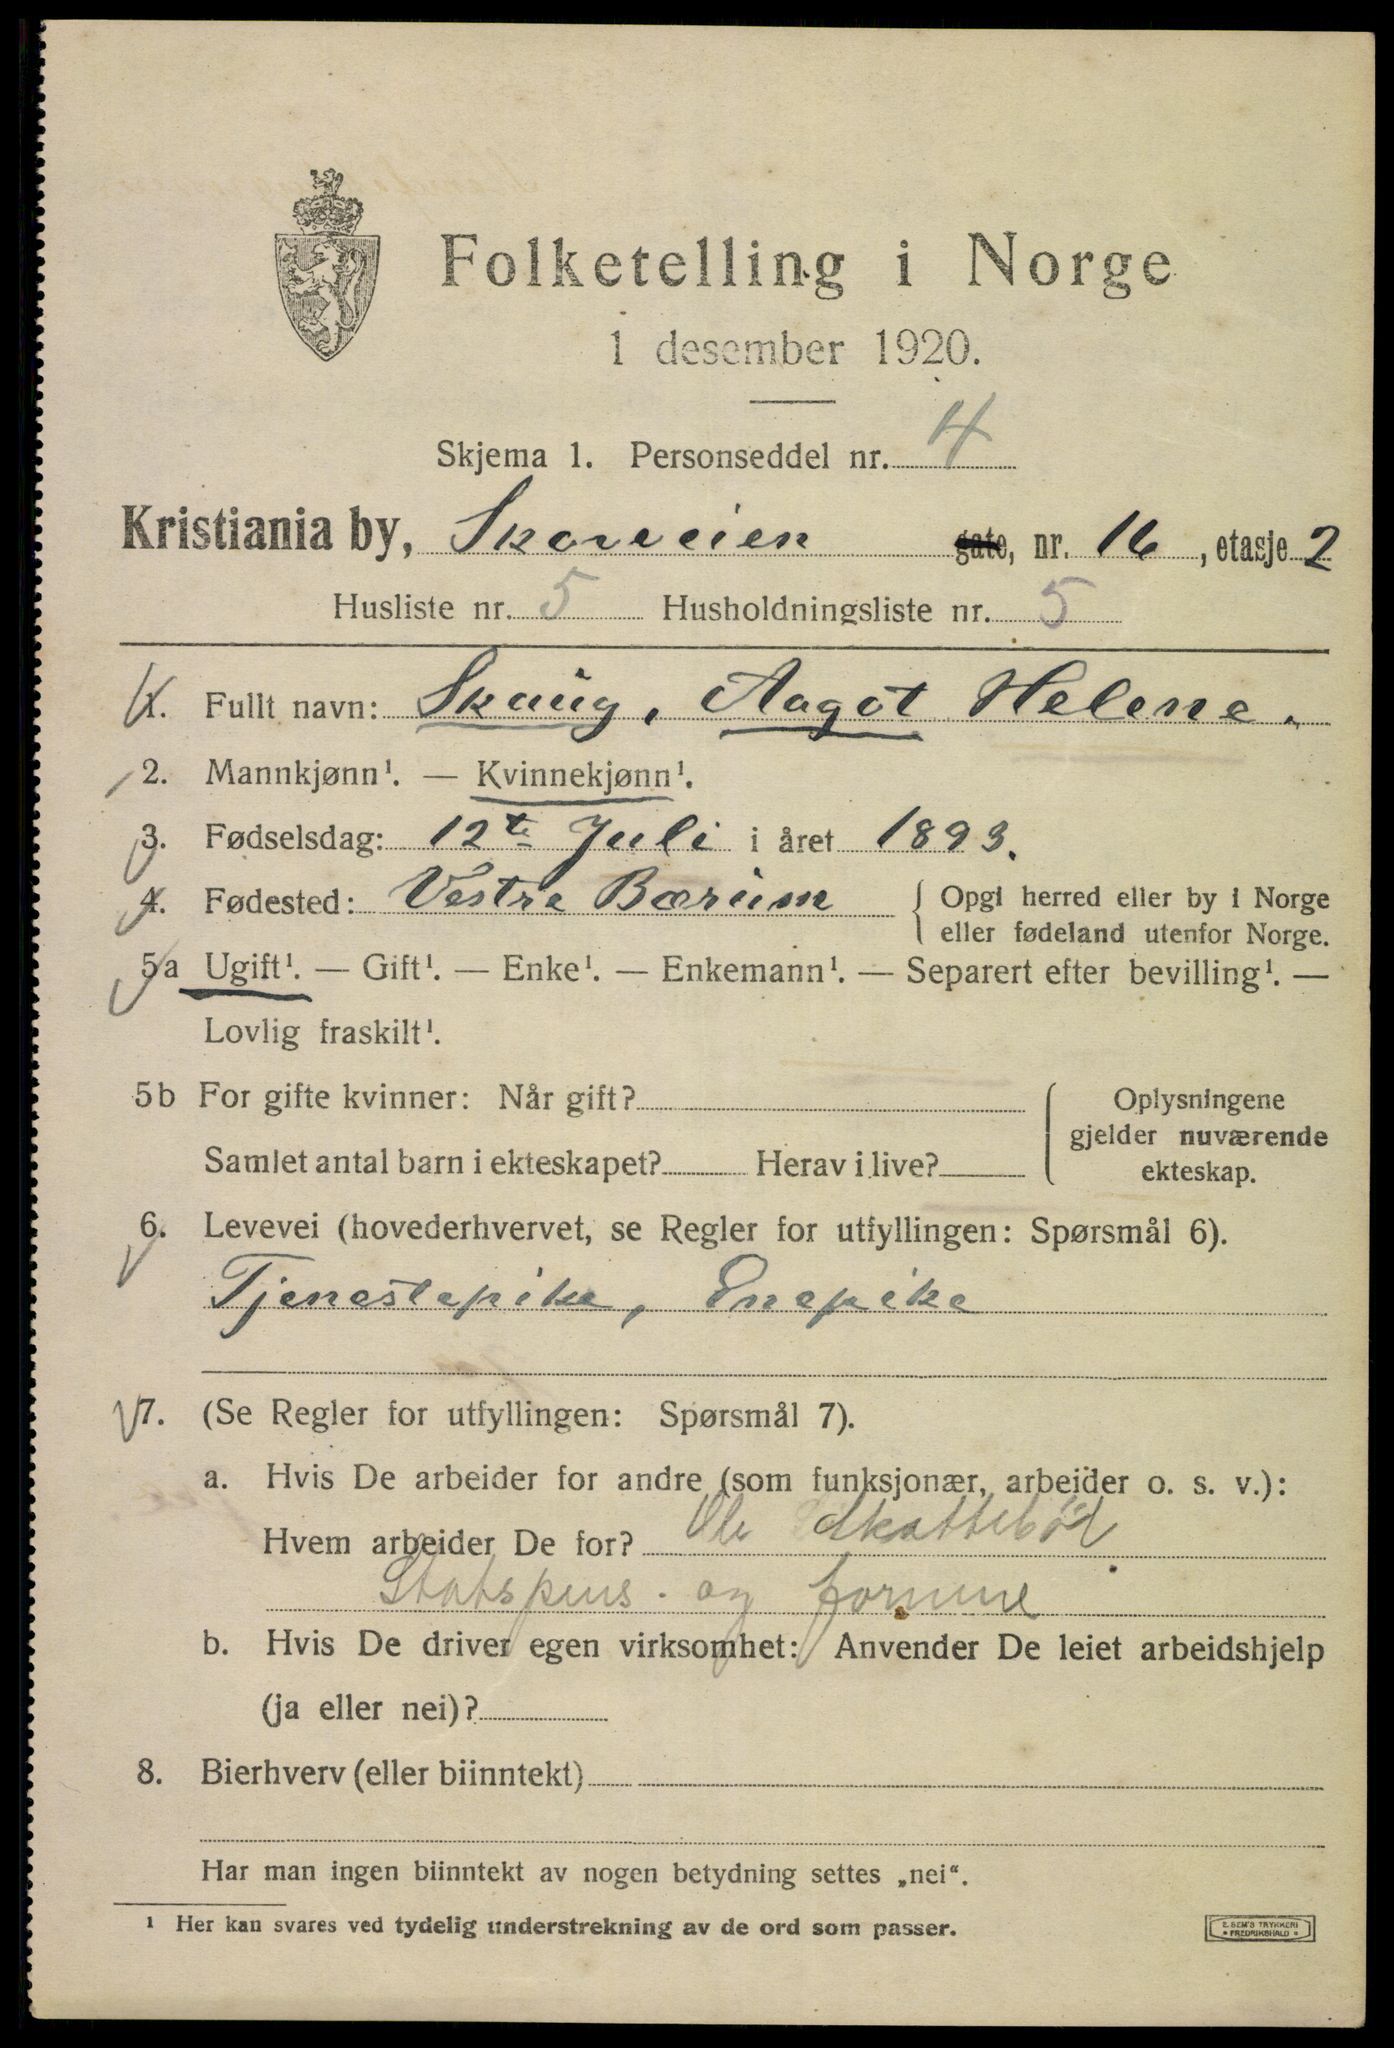 Folketelling i Norge
1 desember 1920.
Skjema 1. Personseddel nr. 4
Kristiania by, Skovveien gate, nr. 16, etasje 2
Husliste nr. 5 Husholdningsliste nr. 5
1. Fullt navn: Skaug, Aagot Helene.
2. Mannkjønn¹. — Kvinnekjønn¹.
3. Fødselsdag: 12te Juli i året 1893.
4. Fødested: Vestre Bærum { Opgi herred eller by i Norge
eller fødeland utenfor Norge.
5a Ugift¹. — Gift¹. — Enke¹. — Enkemann¹. — Separert efter bevilling¹. —
Lovlig fraskilt¹.
5b For gifte kvinner: Når gift? { Oplysningene
gjelder nuværende
Samlet antal barn i ekteskapet? Herav i live?
ekteskap.
6. Levevei (hovederhvervet, se Regler for utfyllingen: Spørsmål 6).
Tjenestepike, Enepike
7. (Se Regler for utfyllingen: Spørsmål 7).
a. Hvis De arbeider for andre (som funksjonær, arbeider o. s. v.):
Hvem arbeider De for? Ole Skattebøl
Statspens. og formue
b. Hvis De driver egen virksomhet: Anvender De leiet arbeidshjelp
(ja eller nei)?
8. Bierhverv (eller biinntekt)
Har man ingen biinntekt av nogen betydning settes „nei“.
¹ Her kan svares ved tydelig understrekning av de ord som passer.
E. SEM'S TRYKKERI
* FREDRIKSHALD *